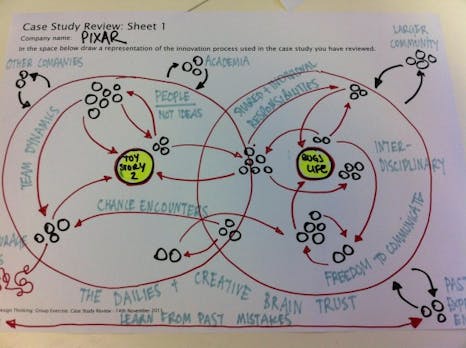 Case Study Review: Sheet 1
Company name: PIXAR
In the space below draw a representation of the innovation process used in the case study you have reviewed.
OTHER COMPANIES
ACADEMIA
LARGER
COMMUNITY
PEOPLE
NOT IDEAS
SHARED + INDIVIDUAL
RESPONSIBILITIES
TEAM DYNAMICS
TOY
STORY
2
BUGS
LIFE
INTER-
DISCIPLINARY
CHANCE ENCOUNTERS
FREEDOM TO COMMUNICATE
THE DAILIES + CREATIVE BRAIN TRUST
PAST
Design Thinking: Group Exercise: Case Study Review - 14th November 2011
LEARN FROM PAST MISTAKES